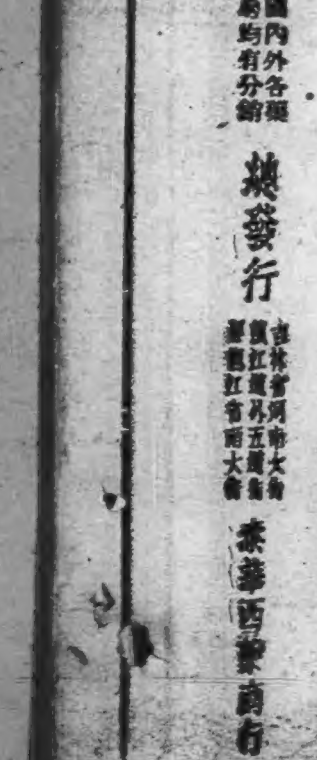 國內外各埠
均均有分館
總發行
吉林省河南大街
濱江道外五道街
黑龍江省南大街
泰華西藥商行